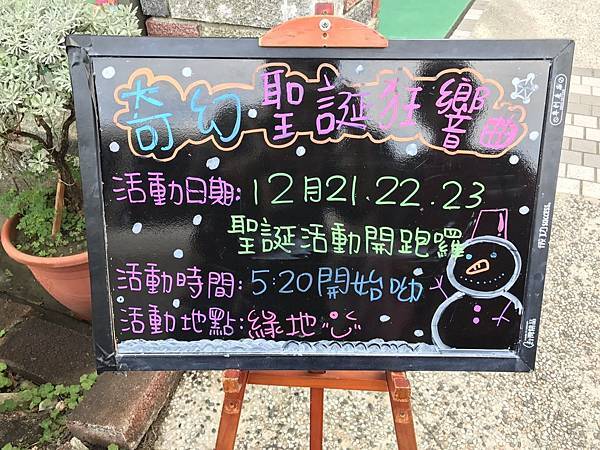 奇幻聖誕狂響曲
活動日期:12月21.22.23
聖誕活動開跑囉
活動時間:5:20開始呦
活動地點:綠地